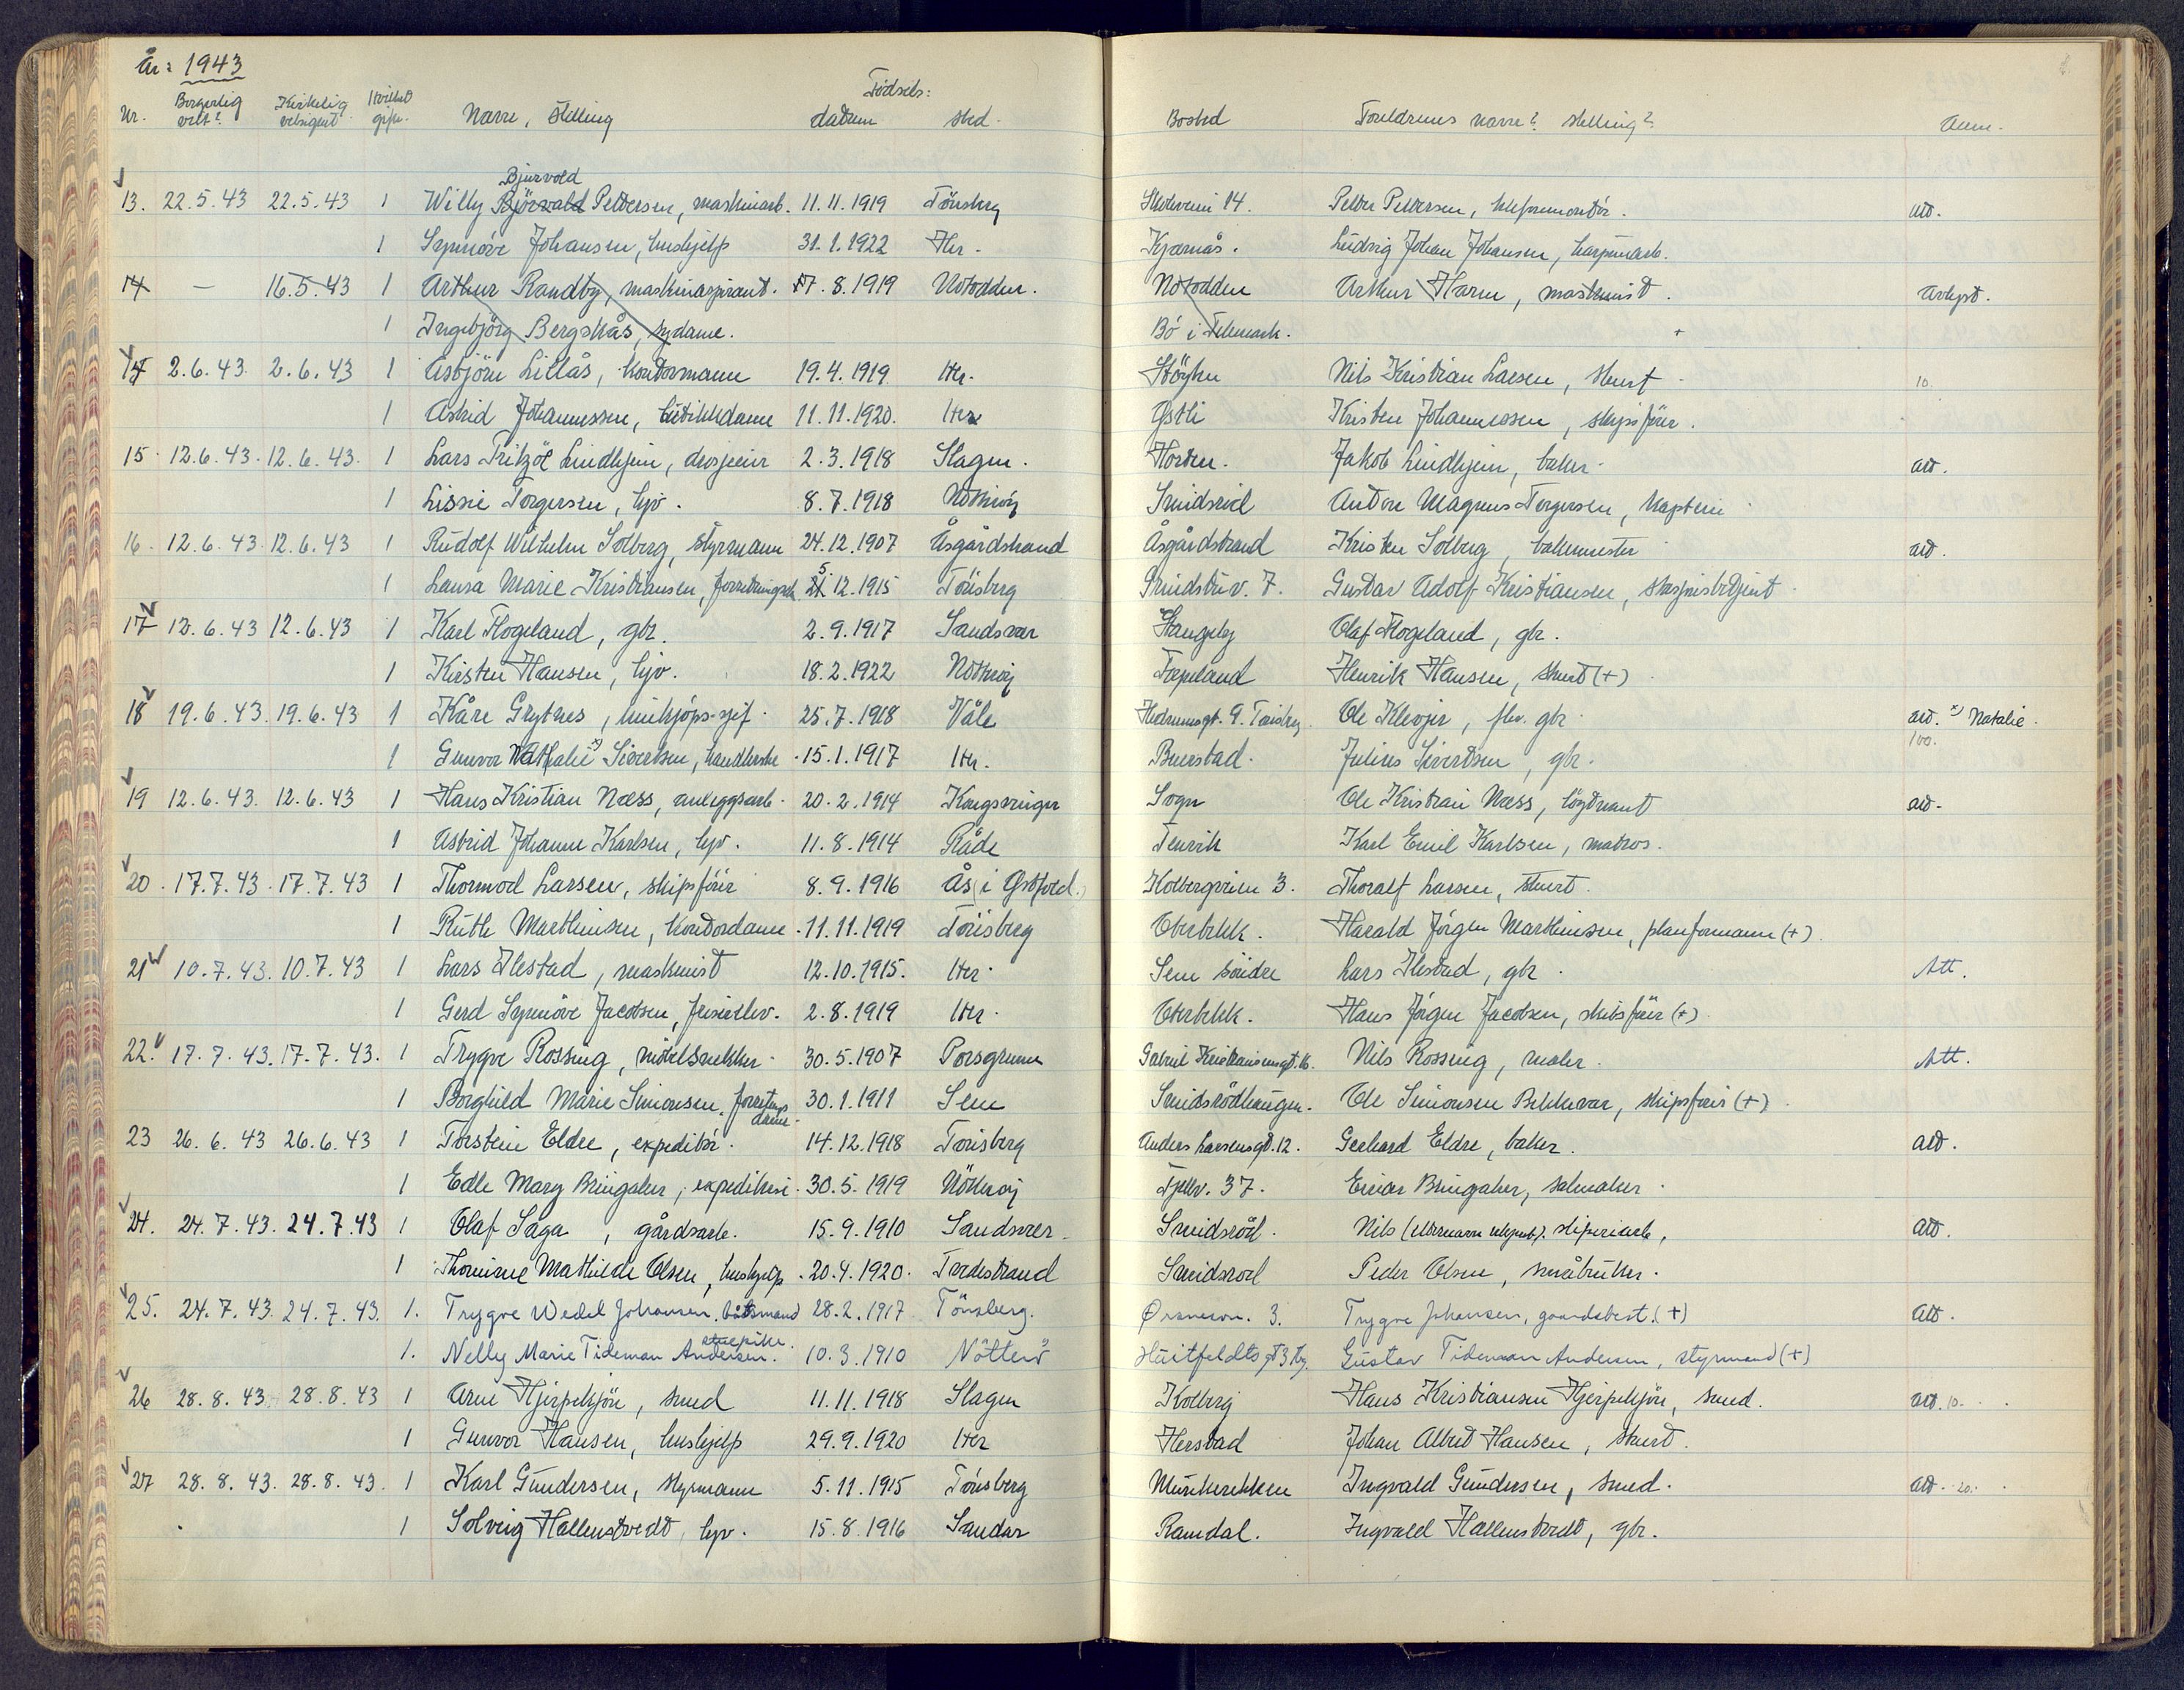 År: 1943
Nr. Borgerlig viet? Kirkelig velsignet Hvilket gifte. Navn, stilling Fødsels: datum sted. Bosted Foreldrenes navn? stilling? Anm.
Bjurvold
13. 22.5.43 22.5.43 1 Willy Björvald Pettersen, maskinarb. 11.11.1919 Tönsberg 14. Petter Pettersen, att.
1 Synnöve Johansen, hushjelp 31.1.1922 Her. Kjærnås. Ludvig Johan Johansen,
14 - 16.5.43 1 Arthur Randby, maskinaspirant. 17.8.1919 Notodden. Notodden Arthur Harm, maskinist. Avlyst.
1 Ingebjörg Bergskås, sydame. Bö i Telemark. +
14 2.6.43. 2.6.43 1 Asbjörn Lillås, kontormann 19.4.1919 Her. Nils Kristian Larsen, stuert 10.
1 Astrid Johannessen, butikkdame 11.11.1920. Her Østli Kristen Johannessen, skipsförer.
15. 12.6.43. 12.6.43. 1 Lars Fritzöe Lindhjem, drosjeeier 2.3.1918 Slagen. Horten. Jakob Lindhjem, baker. att.
1 Lissie Torgersen, hjv. 8.7.1918 Nötteröy Smidsröd Anton Magnus Torgersen, kaptein
16. 12.6.43. 12.6.43 1 Rudolf Wilhelm Solberg, styrmann 24.12.1907 Åsgårdstrand Åsgårdstrand Kristen Solberg, bakermester att.
1 Laura Marie Kristiansen, 5. 12.1915 Tönsberg 7. Gustav Adolf Kristiansen,
17 12.6.43 12.6.43 1 Karl Hogeland, gbr. 2.9.1917 Sandsvær Olaf Hogeland, gbr.
1 Kirsten Hansen, hjv. 18.2.1922 Nötteröy Føynland Henrik Hansen, stuert (+)
18 19.6.43. 19.6.43 1 Kåre Grytnes, 25.7.1918 Våle 9. Tönsberg. Ole Klevjer, gbr. att. x) Natalie.
100.
1 Gunvor Nathalie x) Sivertsen, 15.1.1917 Her. Buerstad. Julius Sivertsen, gbr.
19 12.6.43. 12.6.43 1 Hans Kristian Næss, anleggsarb. 20.2.1914 Kongsvinger Sogn Ole Kristian Næss, löytnant att.
1 Astrid Johanne Karlsen, hjv. 11.8.1914 Råde Tenvik Karl Emil Karlsen, matros.
20. 17.7.43. 17.7.43 1 Thormod Larsen, skipsförer 8.9.1916 Ås (i Østfold.) Kolbergveien 3. Thoralf Larsen, stuert.
1 Ruth Marthinsen, kontordame. 11.11.1919 Tönsberg Oterbekk. Harald Jörgen Marthinsen, planformann (+).
21 10.7.43. 10.7.43 1 Lars Ilestad, maskinist 12.10.1915. Her. Sem söndre Lars Ilestad, gbr. Att.
1 Gerd Synnöve Jacobsen, 2.8.1919 Her. Oterbekk. Hans Jörgen Jacobsen, skibsförer (+)
22. 17.7.43. 17.7.43. 1 Trygve Rossing, möbelsnekker. 30.5.1907 Porsgrunn Gabriel Kristiansensgt. 16. Nils Rossing, maler. Att.
1 Borghild Marie Simonsen, forretningsdame. 30.1.1911 Sem Smidsrödhaugen. Ole Simonsen Bekkevar, skipsförer (+)
23 26.6.43 26.6.43 1 Torstein Eldre, expeditör. 14.12.1918 Tönsberg Anders Larsensgt. 12. Gerhard Eldre, baker. att.
1 Edle Mary Bringaker, expeditrise. 30.5.1919 Nötteröy Tjellv. 37. Einar Bringaker, salmaker.
24. 24.7.43. 24.7.43 1 Olaf Saga, gårdsarb. 15.9.1910 Sandsvær. Smidsröd. Nils att.
1 Thomine Mathilde Olsen, hushjelp. 20.4.1920. Tvedestrand Smidsröd Peder Olsen, småbruker.
25. 24.7.43. 24.7.43. 1. Trygve Wedel Johansen, båtsmand 28.2.1917 Tönsberg. 3. Trygve Johansen, gaardsbest. (+) att.
1. Nelly Marie Tideman Andersen. 10.3.1910 Nötterö Huitfeldts gt 3 Gustav Tideman Andersen, styrmand (+)
26 28.8.43. 28.8.43 1 Arne Hjerpekjön, smed 11.11.1918 Slagen Kolberg Hans Kristiansen Hjerpekjön, smed. att. 10.
1 Gunvor Hansen, hushjelp 29.9.1920 Her Herstad Johan Alfred Hansen, stuert.
27 28.8.43. 28.8.43. 1 Karl Gundersen, styrmann 5.11.1915 Tönsberg Munkerekken Ingvald Gundersen, smed. att. 20.
1 Solveig Hallenstvedt, hjv. 15.8.1916 Sandar Ramdal. Ingvald Hallenstvedt, gbr.